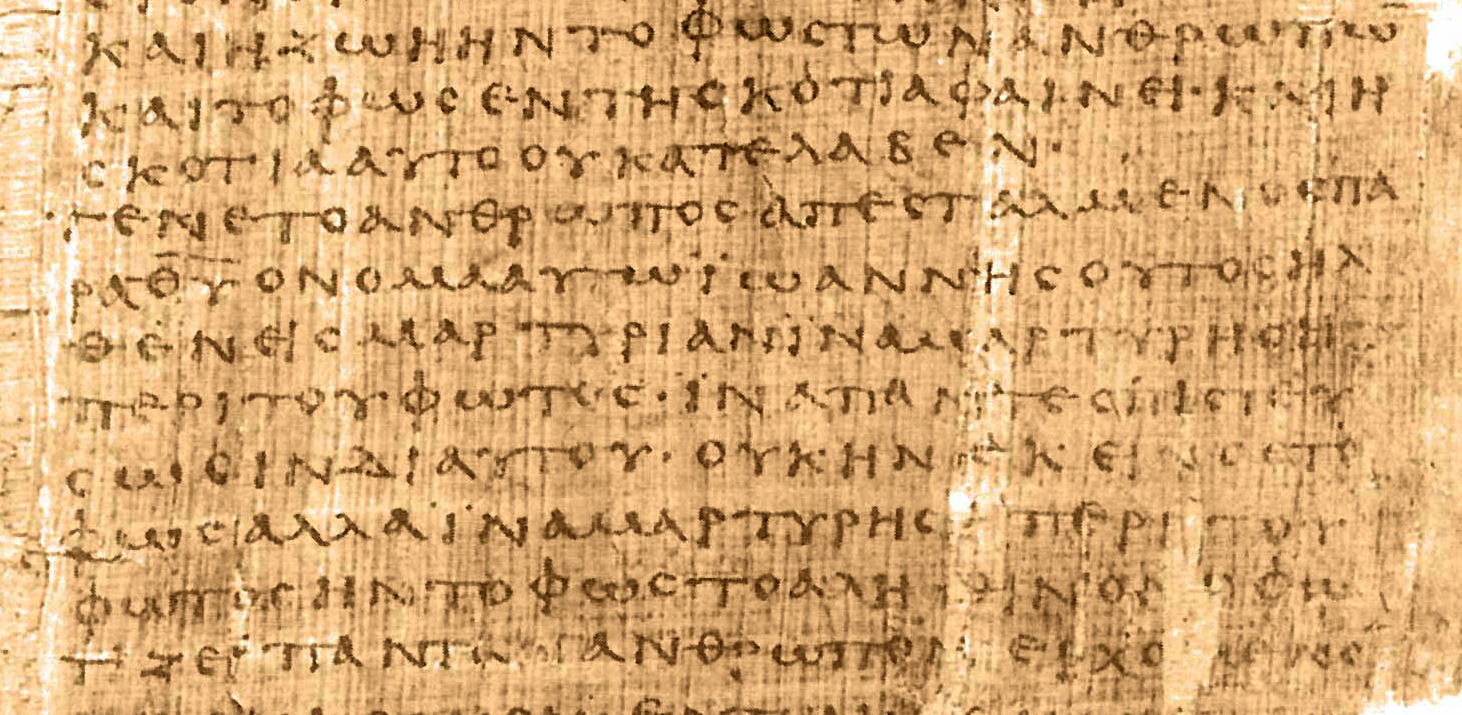 ΚΑΙΗΖΩΗΗΝΤΟΦΩСΤΩΝΑΝΘΡΩΠΩ̅
ΚΑΙΤΟΦΩСΕΝΤΗСΚΟΤΙΑΦΑΙΝΕΙ·ΚΑΙΗ
СΚΟΤΙΑΑΥΤΟΟΥΚΑΤΕΛΑΒΕΝ·
ΕΓΕΝΕΤΟΑΝΘΡΩΠΟСΑΠΕСΤΑΛΜΕΝΟСΠΑ
ΡΑΘ̅Υ̅ΟΝΟΜΑΑΥΤΩΪΩΑΝΝΗСΟΥΤΟСΗΛ
ΘΕΝΕΙСΜΑΡΤΥΡΙΑΝΪΝΑΜΑΡΤΥΡΗСΗ
ΠΕΡΙΤΟΥΦΩΤΟС·ΪΝΑΠΑΝΤΕСΠΙСΤΕΥ
СΩСΙΝΔΙΑΥΤΟΥ·ΟΥΚΗΝΕΚΕΙΝΟСΤΟ
ΦΩСΑΛΛΑΪΝΑΜΑΡΤΥΡΗСΗΠΕΡΙΤΟΥ
ΦΩΤΟСΗΝΤΟΦΩСΤΟΑΛΗΘΙΝΟΝΟΦΩ
ΤΙΖΕΙΠΑΝΤΑΑΝΘΡΩΠΟΝΕΡΧΟΜΕΝΟ